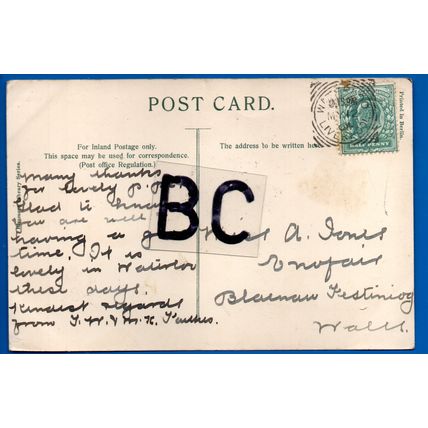 POST CARD.
For Inland Postage only.
This space may be used for correspondence.
(Post office Regulation.)
The address to be written here
Printed in Berlin.
HALF PENNY
many thanks
for lovely p.p.
Glad to know
you are well
having a
time. It is
lovely in Waterloo
these days.
Kindest regards
from
BC
Miss A. Jones
Blaenau Festiniog
Wales.